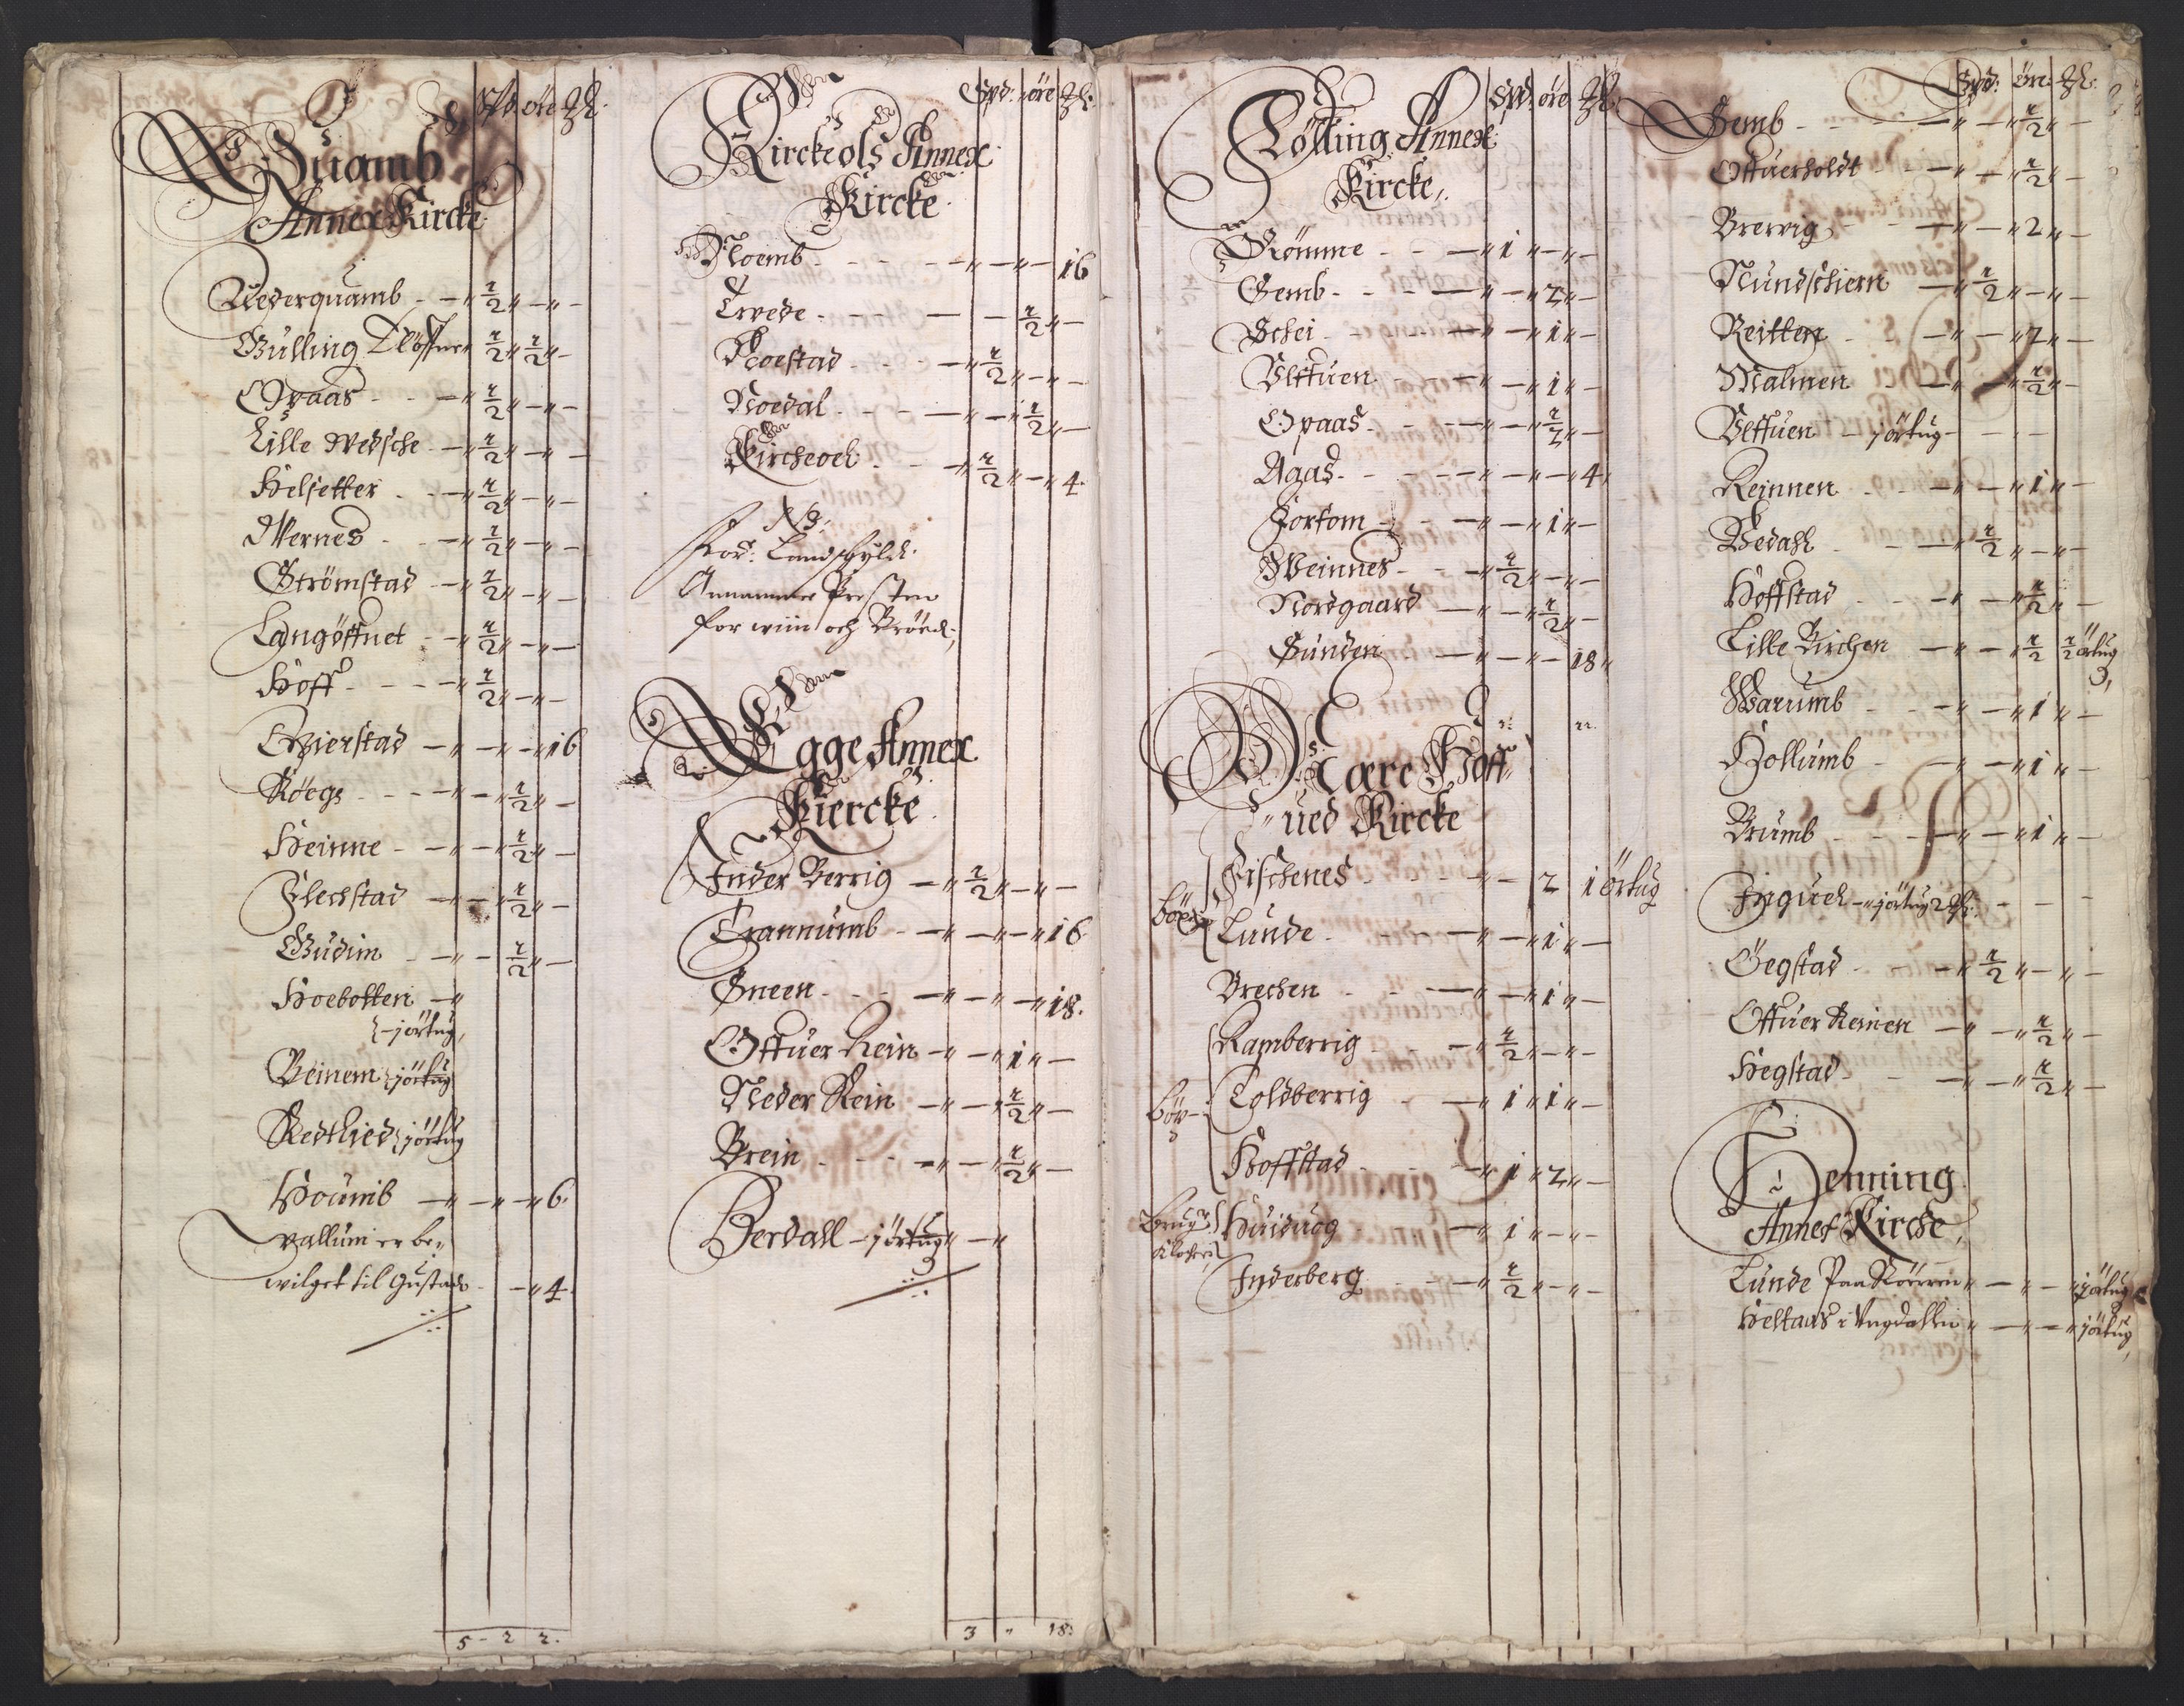 Spd. öre
Quamb
Annex Kircke
Nederquamb - - " ½ " - " -
Gulling Tløffuer " ½ " ½ " -
Opaas - - " ½ " - " -
Lille Wedsche - " ½ " - " -
Helsetter - - " ½ " - " -
Wernes - - " ½ " - " -
Strömstad - " ½ " - " -
Langöffuet - " ½ " - " -
Hoff - - - " ½ " - " -
Gierstad - " - " - " 16
Röegs - - - " - ½ " -
Heinne - - " - " ½ " -
Flechstad - " - " ½ " -
Gudim - - " - ½ " -
Hoebolten - "
- jörtug,
Beinem jörtug
Redthied jörtug
Hoümb - " - " - " 6.
Vallum er be„
wilget til Gustads - - " 4.
5 - 2 2.
Spd: öre
Kirckeols Annex
Kircke
Moemb - - - " - " - 16
Tvede - - - - - ½ " -
Roestad - - - " ½ " - " -
Moedal - - - " - " ½ " -
Kircheoel - - " ½ " - " 4.
NB:
Landschyldt
Annammer Presten
for wiin och Bröed,
Egge Annex
Kiercke
Inder Berrig - " ½ " - " -
Trannumb - - " - " - " 16
Sneen - - - " - " - " 18.
Offuer Rein - " - " 1 " -
Neder Rein - " - " ½ " -
Brein - - - " - " ½ " -
Berdall - jörtug " - "
3 " 18
Spd: öre
Sölling Annex
Kircke„
Römme - - - " 1 " - " -
Semb - - - " - " 2 " -
Schei - - - " - " 1 " -
Vlffuen - - - " - " 1 " -
Opaas - - - " - " ½ " -
Agas - - - " - " - " 4 "
Forsom - - - " - " 1 " -
Weinnes - - " ½ " - " -
Nordgaard - " - " ½ " -
Sunden - " - " - " 18 "
Mære Hoff„
„ued Kircke
Fischenes - - - " - 2 1 örtug
Lunde - - - " - " 1 " -
Brechen - - - " - " 1 " -
Ramberrig - - " ½ " - " -
Toldberrig - - " 1 " 1 " -
Hoffstad - - - " 1 " 2 " -
Huiduog - " 1 " - " -
Inderberg - - " ½ " - " -
Spd: öre
Semb - - - " - " ½ " -
Offuerholdt - - " - " ½ " -
Brervig - - " - " 2 " -
Mundschiern - " ½ " - " -
Reitten - - " - " 2 " -
Malmen - " - " ½ " -
Vlffuen - jörtug - - - -
Reinnen - - " - " 1 " -
Bedahl - - " ½ " - " -
Hoffstad - - " - " ½ " -
Lille Kirchen - " - " ½ ½ örtug
Warumb - - " - " 1 " -
Hollumb - - " - " 1 " -
Brumb - - - " - " 1 " -
- " jörtug 2
Öegstad - - " ½ " - " -
Offuer Reinen - " - " ½ " -
Hegstad - - " - " ½ " -
Henning
Annex Kirche,
Lunde Paa " - " - " jörtug
" - " - " jörtug,